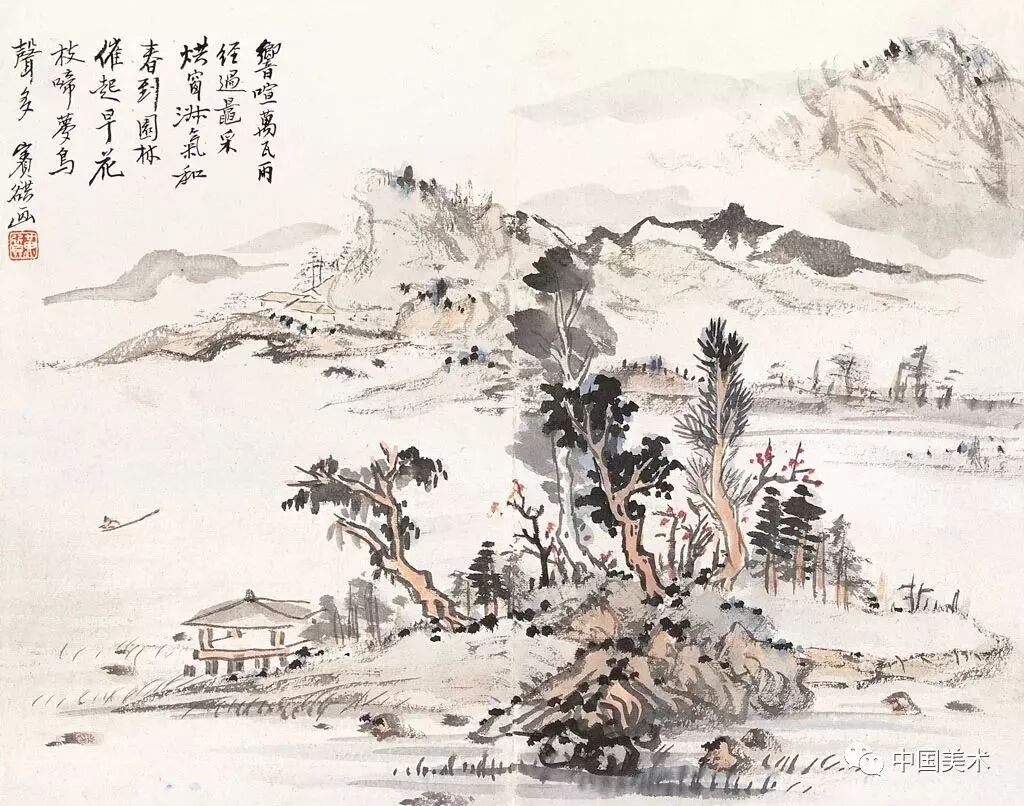 響喧萬瓦雨
经過鼂采
烘窗淑氣和
春到園林
催起早花
枝啼夢鳥
聲多 賓谼画
中国美术